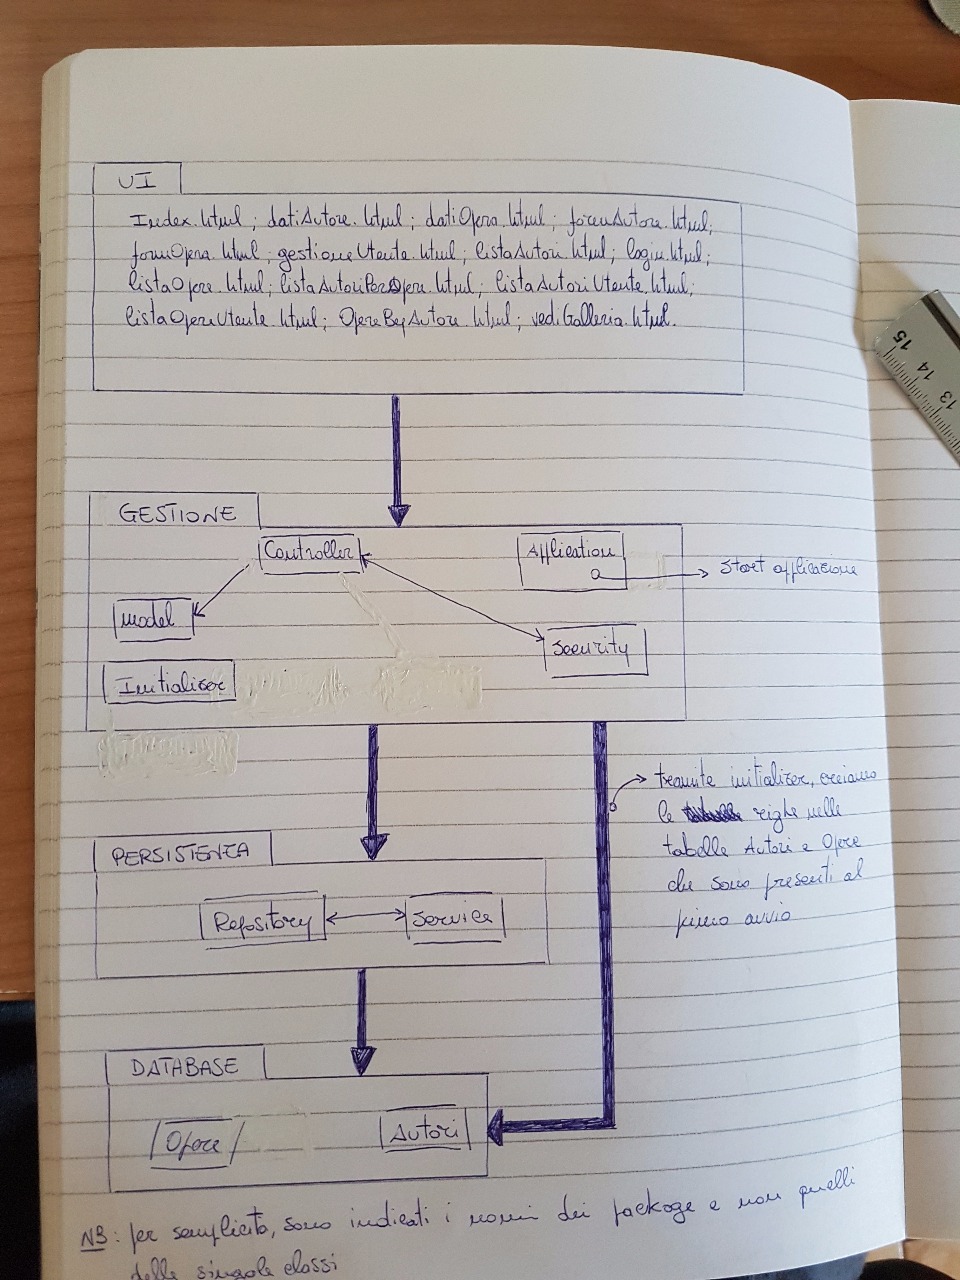 UI
Index.html; datiAutore.html; datiOpera.html; formAutore.html;
formOpera.html; gestioneUtente.html; listaAutori.html; login.html;
listaOpere.html; listaAutoriPerOpere.html; listaAutoriUtente.html;
listaOpereUtente.html; OpereByAutore.html; vediGalleria.html.
GESTIONE
Controller
Application
Start applicazione
Model
Security
Initializer
tramite initializer, creiamo
le righe nelle
tabelle Autori e Opere
che sono presenti al
primo avvio
PERSISTENZA
Repository
Service
DATABASE
Opere
Autori
NB: per semplicità, sono indicati i nomi dei package e non quelli
delle singole classi
15
14
13